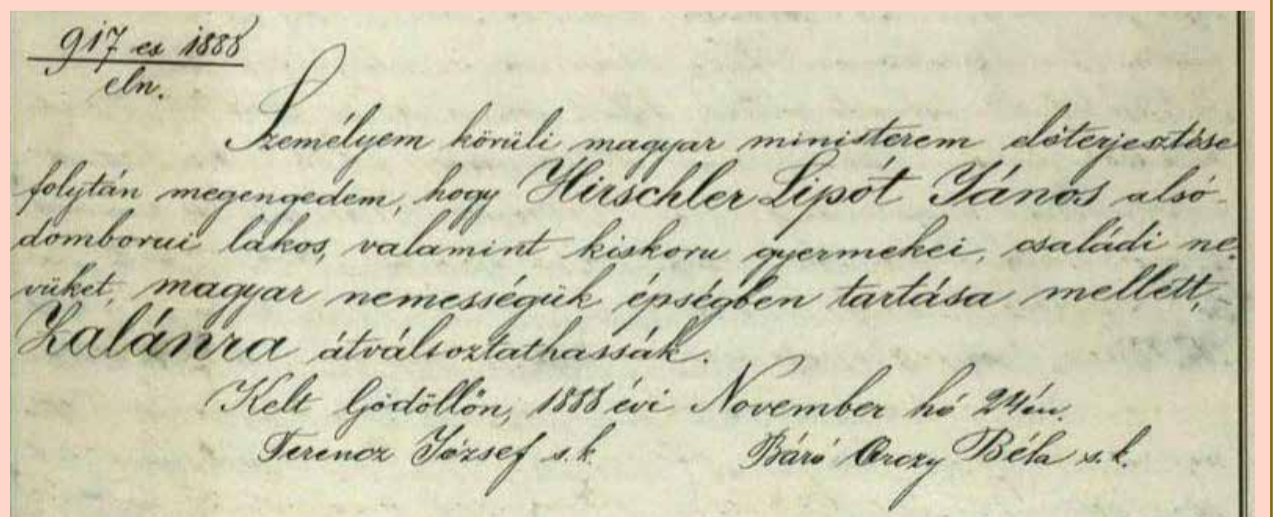 917 es 1888
eln.
Személyem körüli magyar ministerem előterjesztése
folytán megengedem, hogy Hirschler Lipót János alsó-
domborui lakos, valamint kiskoru gyermekei, családi ne-
vüket, magyar nemességük épségben tartása mellett,
Zalánra átváltoztathassák.
Kelt Gödöllőn, 1888 évi November hó 24én.
Ferencz József s. k. Báró Orczy Béla s. k.